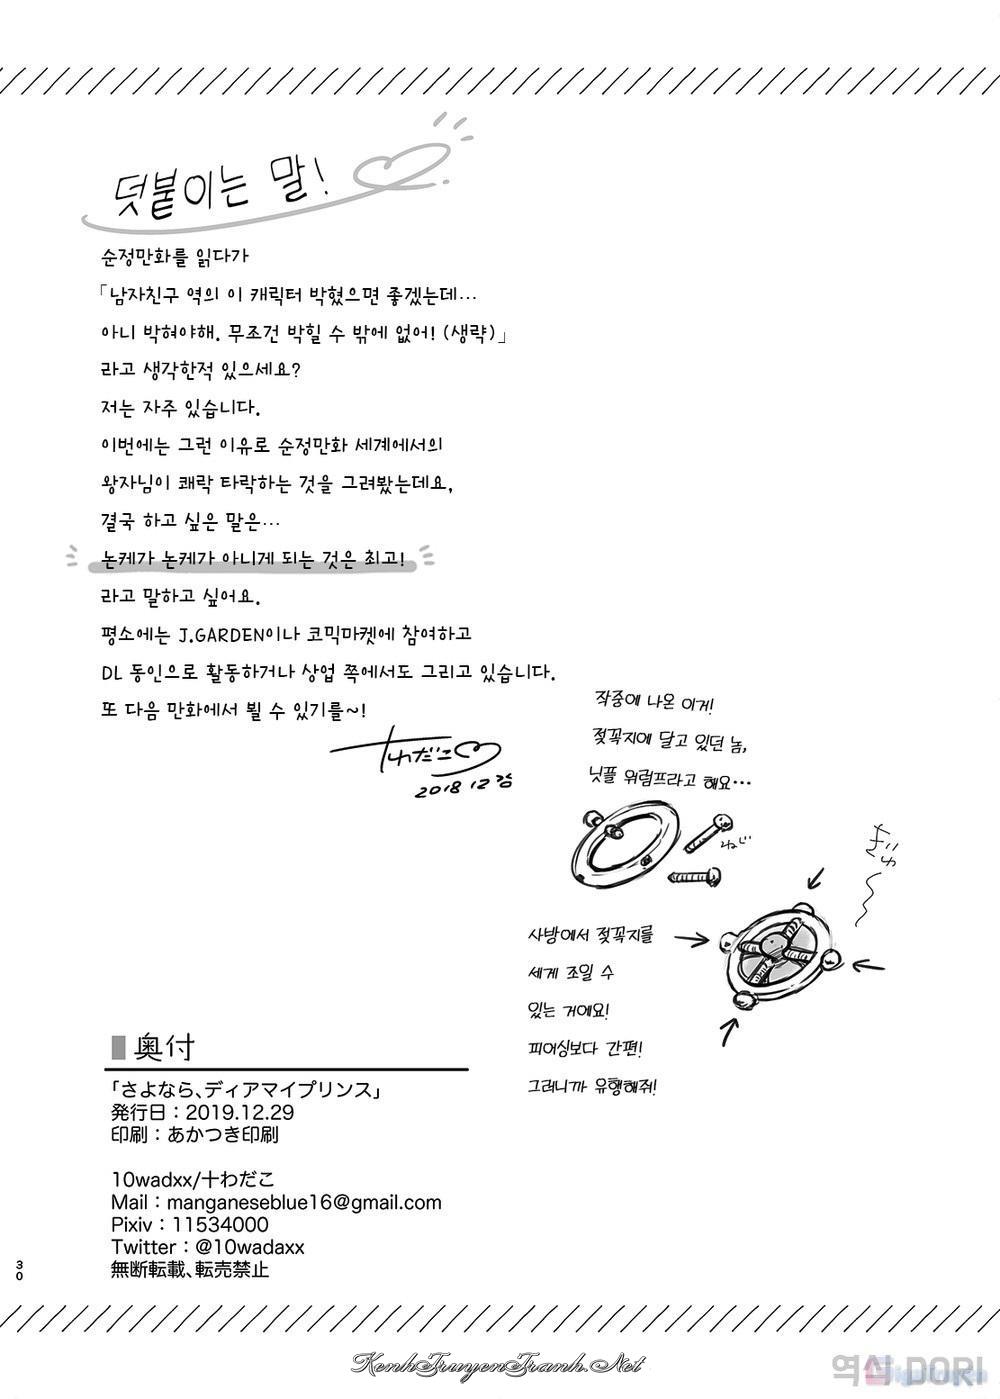 덧붙이는 말!
순정만화를 읽다가
「남자친구 역의 이 캐릭터 박혔으면 좋겠는데…
아니 박혀야해. 무조건 박힐 수 밖에 없어! (생략)」
라고 생각한적 있으세요?
저는 자주 있습니다.
이번에는 그런 이유로 순정만화 세계에서의
왕자님이 쾌락 타락하는 것을 그려봤는데요,
결국 하고 싶은 말은…
논케가 논케가 아니게 되는 것은 최고!
라고 말하고 싶어요.
평소에는 J.GARDEN이나 코믹마켓에 참여하고
DL 동인으로 활동하거나 상업 쪽에서도 그리고 있습니다.
또 다음 만화에서 뵐 수 있기를~!
十わだこ
2018 12
작중에 나온 이거!
젖꼭지에 달고 있던 놈,
닛플 위럼프라고 해요…
ねじ
ぎゅ
사방에서 젖꼭지를
세게 조일 수
있는 거에요!
피어싱보다 간편!
그러니까 유행해줘!
奥付
「さよなら、ディアマイプリンス」
発行日：2019.12.29
印刷：あかつき印刷
10wadxx/十わだこ
Mail：manganeseblue16@gmail.com
Pixiv：11534000
Twitter：@10wadaxx
無断転載、転売禁止
30
KenhTruyenTranh.Net
역식 DORI